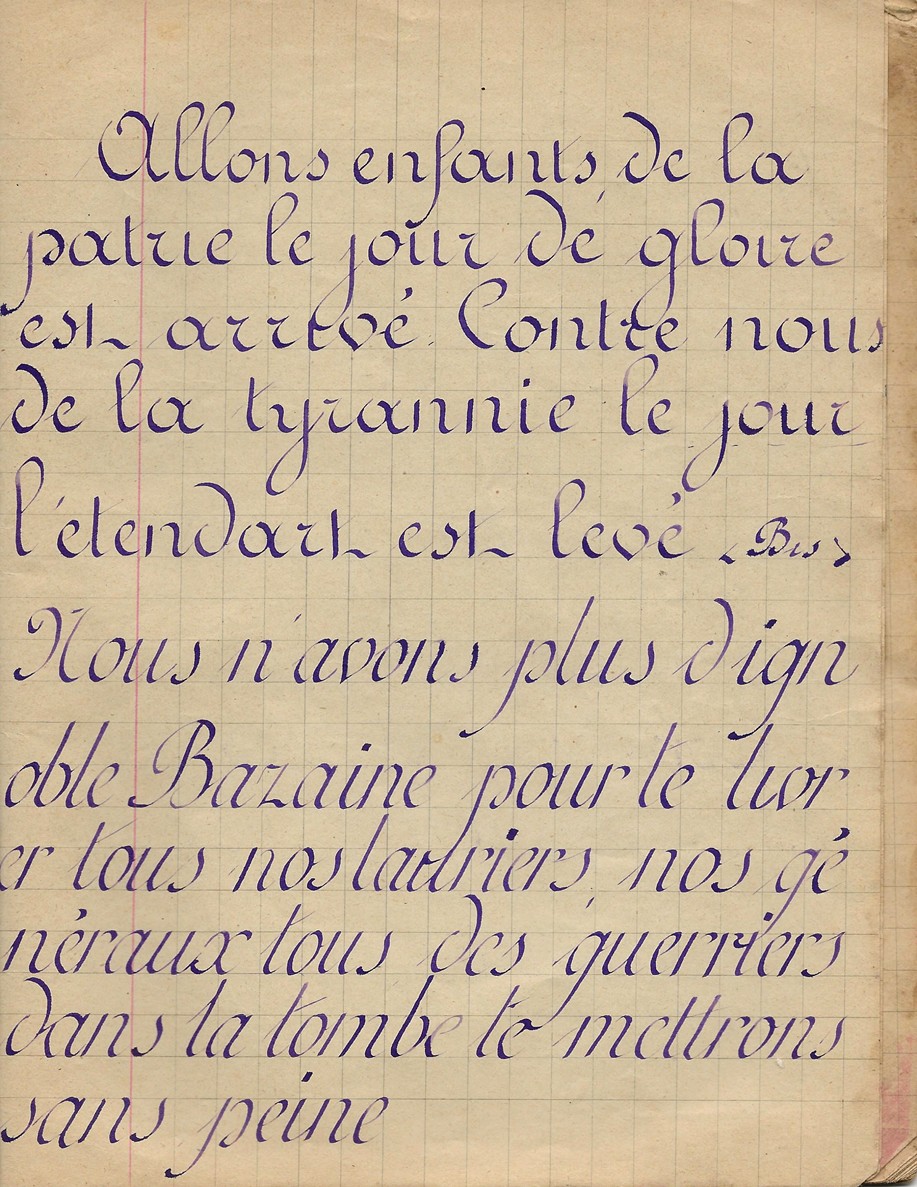 Allons enfants de la
patrie le jour de gloire
est arrivé. Contre nous
de la tyrannie le jour
l'étendart est levé (Bis)
Nous n'avons plus d'ign
oble Bazaine pour te livr
er tous nos lauriers, nos gé
néraux tous des guerriers
dans la tombe te mettrons
sans peine